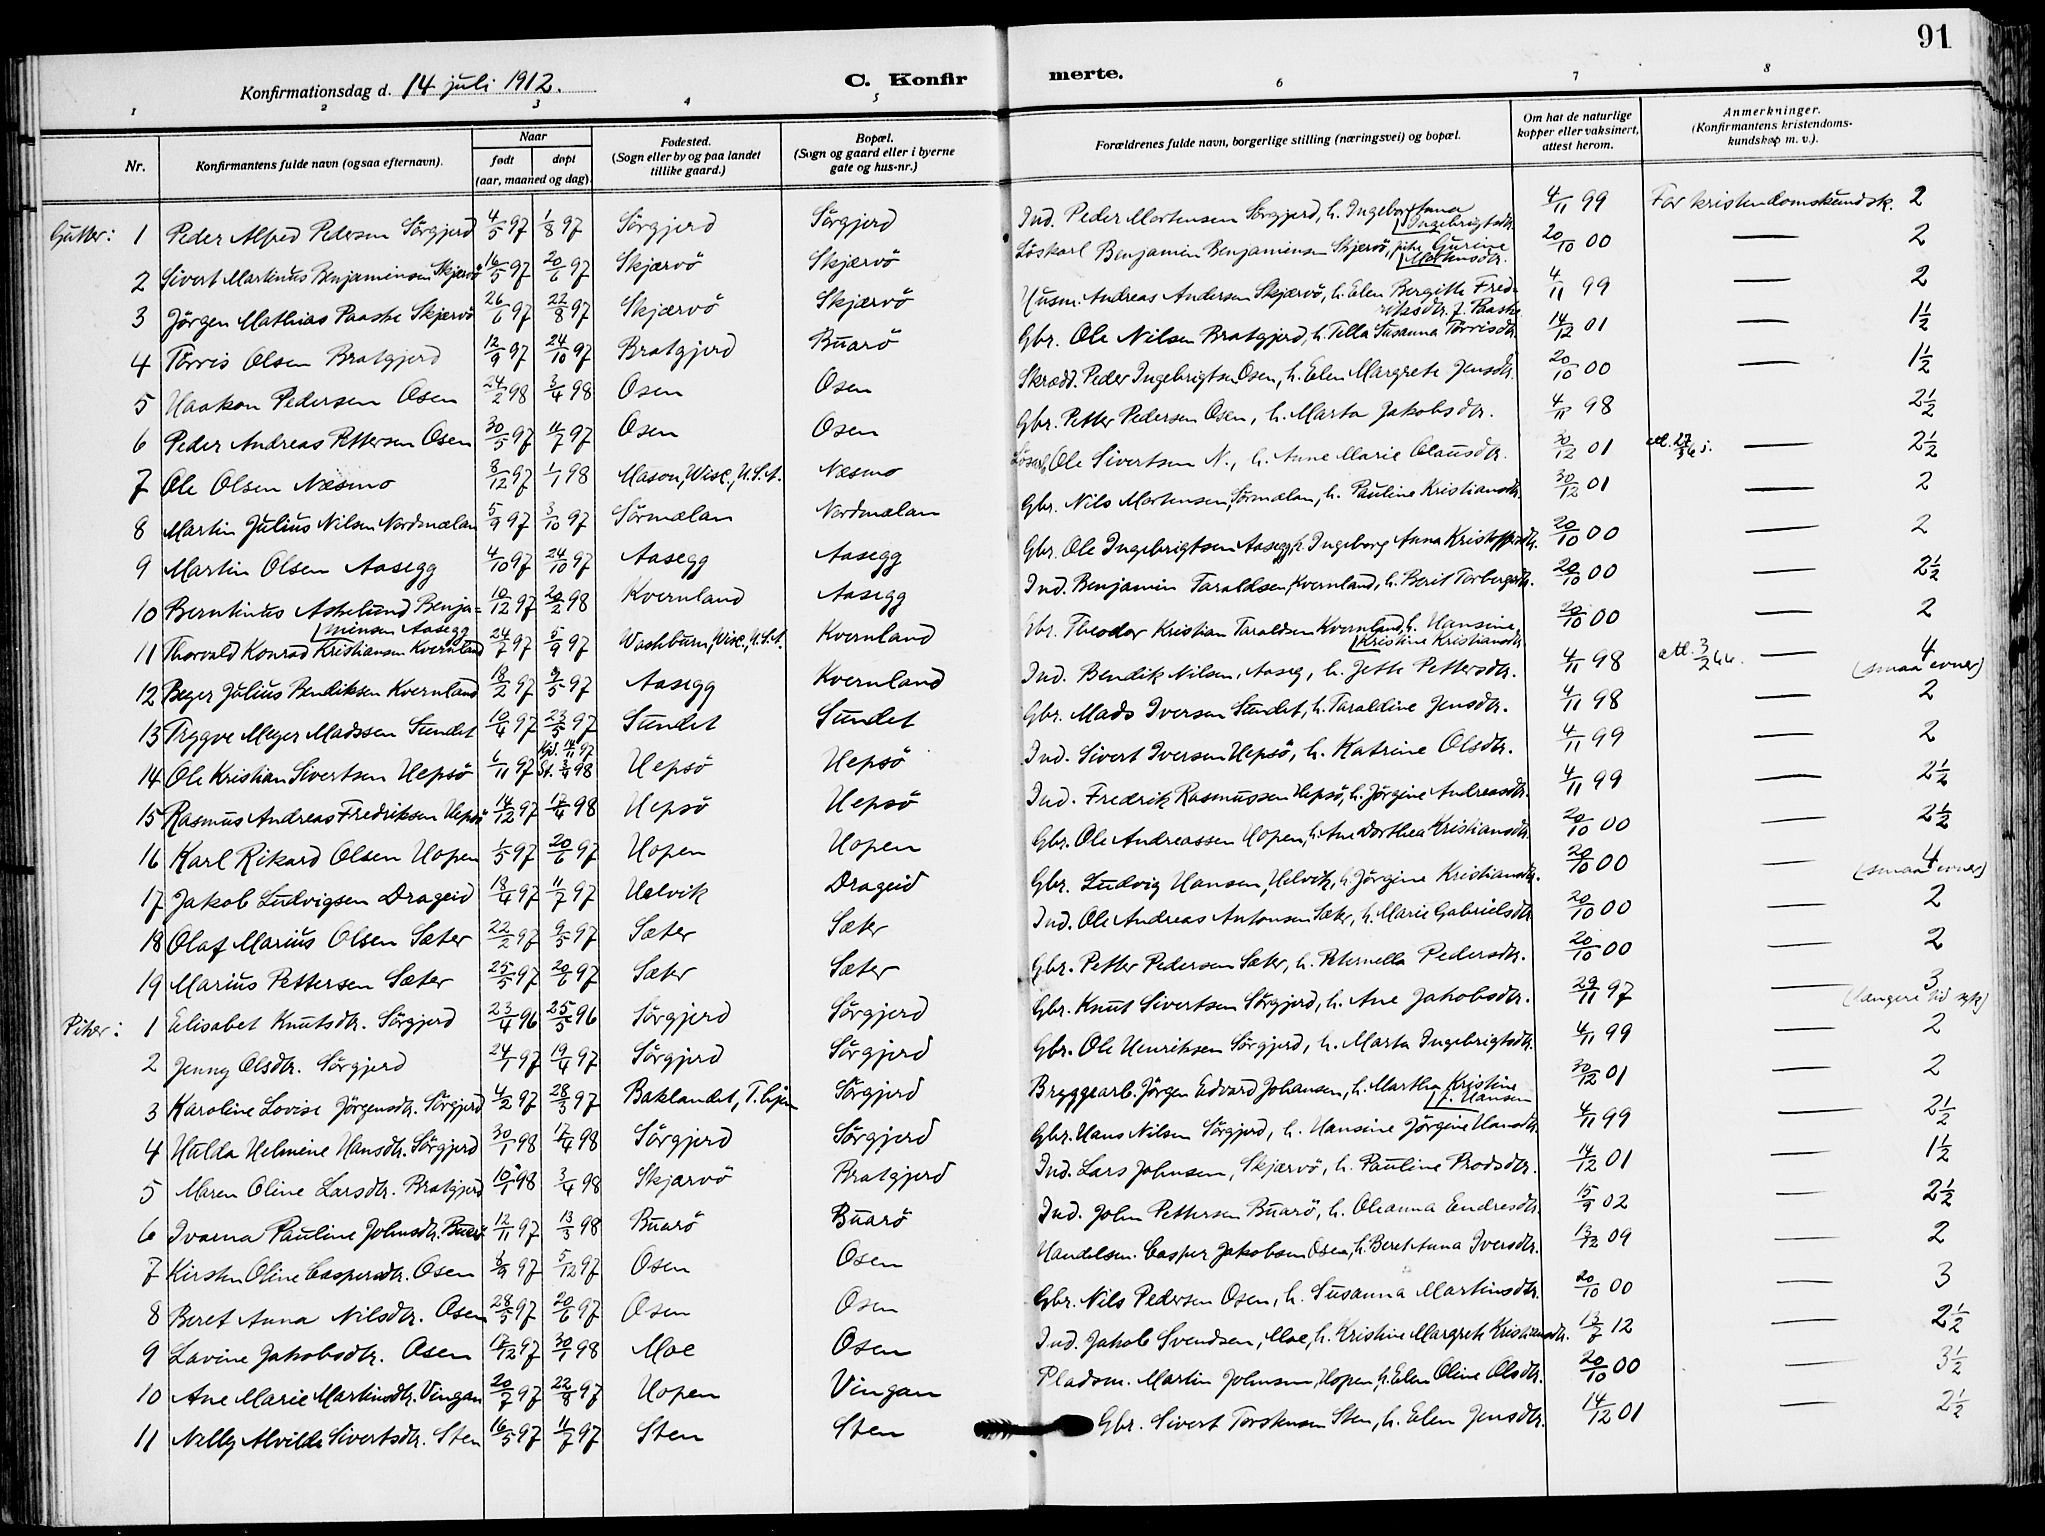 91
Konfirmationsdag d. 14 juli 1912. C. Konfir merte.
1 2 3 4 5 6 7 8
Nr. Konfirmantens fulde navn (ogsaa efternavn). Naar født døpt (aar, maaned og dag). Fødested. (Sogn eller by og paa landet tillike gaard.) Bopæl. (Sogn og gaard eller i byerne gate og hus-nr.) Forældrenes fulde navn, borgerlige stilling (næringsvei) og bopæl. Om hat de naturlige kopper eller vaksinert, attest herom. Anmerkninger. (Konfirmantens kristendomskundskap m. v.).
Gutter: 1 Peder Alfred Pedersen Sörgjerd 4/5 97 1/8 97 Sörgjerd Sörgjerd Ind. Peder Mortensen Sörgjerd, h. Ingeborg Anna Ingebrigtsdtr. 4/11 99 For kristendomskundsk. 2
2 Sivert Martinus Benjaminsen Skjærvö 16/5 97 20/6 97 Skjærvö Skjærvö Löskarl Benjamin Benjaminsen Skjærvö, pike Gurine Martinusdtr. 20/10 00 — 2
3 Jörgen Mathias Paaske Skjærvö 26/6 97 22/8 97 Skjærvö Skjærvö Husm. Andreas Andersen Skjærvö, h. Elen Bergitte Fredriksdtr. f. Paaske 4/11 99 — 2
4 Törris Olsen Bratgjerd 12/9 97 24/10 97 Bratgjerd Buarö Gbr. Ole Nilsen Bratgjerd, h. Tella Susanna Törrisdtr. 14/12 01 — 1½
5 Haakon Pedersen Osen 24/2 98 3/4 98 Osen Osen Skrædd. Peder Ingebrigtsen Osen, h. Elen Margrete Jensdtr. 20/10 00 — 1½
6 Peder Andreas Pettersen Osen 30/5 97 11/7 97 Osen Osen Gbr. Petter Pedersen Osen, h. Marta Jakobsdtr. 4/11 98 2½
7 Ole Olsen Næsmo 8/12 97 1/1 98 Mason, Wisc., U.S.A. Næsmo Ole Sivertsen N., h. Anne Marie Olausdtr. 30/12 01 — 2½
8 Martin Julius Nilsen Nordmælan 5/9 97 3/10 97 Sörmælan Nordmælan Gbr. Nils Mortensen, Sörmælan, h. Pauline Kristiansdtr. 30/12 01 — 2
9 Martin Olsen Aasegg 4/10 97 24/10 97 Aasegg Aasegg Gbr. Ole Ingebrigtsen Aasegg, h. Ingeborg Anna Kristoffersdtr. 20/10 00 — 2
10 Berntinus Askelund Benjaminsen Aasegg 10/12 97 20/2 98 Kvernland Aasegg Ind. Benjamin Taraldsen, Kvernland, h. Berit Torbergsdtr. 20/10 00 — 2½
11 Thorvald Konrad Kristiansen Kvernland 24/7 97 5/9 97 Washburn, Wisc., U.S.A. Kvernland Gbr. Theodor Kristian Taraldsen Kvernland, h. Hansine Kristine Kristiansdtr. 20/10 00 — 2
12 Beyer Julius Bendiksen Kvernland 18/2 97 9/5 97 Aasegg Kvernland Ind. Bendik Nilsen, Aaseg, h. Jette Pettersdtr. 4/11 98 att. 3/2 44. — 4 (smaa evner)
13 Trygve Meyer Madssen Sundet 10/4 97 23/5 97 Sundet Sundet Gbr. Mads Iversen Sundet, h. Taraldine Jensdtr. 4/11 98 — 2
14 Ole Kristian Sivertsen Hepsö 6/11 97 Hjd. 14/11 97 St. 3/4 98 Hepsö Hepsö Ind. Sivert Iversen Hepsö, h. Katrine Olsdtr. 4/11 99 — 2
15 Rasmus Andreas Fredriksen Hepsö 14/12 97 17/4 98 Hepsö Hepsö Ind. Fredrik Rasmussen Hepsö, h. Jörgine Andreasdtr. 4/11 99 — 2½
16 Karl Rikard Olsen Hopen 1/5 97 20/6 97 Hopen Hopen Gbr. Ole Andreassen Hopen, h. Ane Dorthea Kristiansdtr. 20/10 00 — 2½
17 Jakob Ludvigsen Drageid 18/4 97 11/7 97 Helvik Drageid Gbr. Ludvig Hansen, Helvik, h. Jörgine Kristiansdtr. 20/10 00 — 4 (smaa evner)
18 Olaf Marius Olsen Sæter 22/2 97 9/5 97 Sæter Sæter Ind. Ole Andreas Antonsen Sæter, h. Marie Gabrielsdtr. 20/10 00 — 2
19 Marius Pettersen Sæter 25/5 97 20/6 97 Sæter Sæter Gbr. Petter Pedersen Sæter, h. Peternella Pedersdtr. 20/10 00 — 2
Piker: 1 Elisabet Knutsdtr. Sörgjerd 23/4 96 25/5 96 Sörgjerd Sörgjerd Gbr. Knut Sivertsen Sörgjerd, h. Ane Jakobsdtr. 29/11 97 — 3 (længere tid syk)
2 Jenny Olsdtr. Sörgjerd 24/1 97 19/4 97 Sörgjerd Sörgjerd Gbr. Ole Henriksen Sörgjerd, h. Marta Ingebrigtsdtr. 4/11 99 — 2
3 Karoline Lovise Jörgensdtr. Sörgjerd 4/2 97 28/3 97 Baklandet, T.hjem Sörgjerd Bryggearb. Jörgen Edvard Johansen, h. Martha Kristine f. Hansen 30/12 01 — 2
4 Hulda Helmine Hansdtr. Sörgjerd 30/1 98 17/4 98 Sörgjerd Sörgjerd Gbr. Hans Nilsen Sörgjerd, h. Hansine Jörgine Hansdtr. 4/11 99 — 2½
5 Maren Oline Larsdtr. Bratgjerd 10/1 98 3/4 98 Skjærvö Bratgjerd Ind. Lars Johnsen, Skjærvö, h. Pauline Prodsdtr. 14/12 01 — 1½
6 Ivarna Pauline Johnsdtr. Buarö 12/11 97 13/3 98 Buarö Buarö Ind. John Pettersen Buarö, h. Oleanna Endresdtr. 15/9 02 — 2½
7 Kirsten Oline Caspersdtr. Osen 8/9 97 5/12 97 Osen Osen Handelsm. Casper Jakobsen Osen, h. Beret Anna Iversdtr. 13/12 09 — 2
8 Beret Anna Nilsdtr. Osen 28/5 97 20/6 97 Osen Osen Gbr. Nils Pedersen Osen, h. Susanna Martinsdtr. 20/10 00 — 3
9 Lavine Jakobsdtr. Osen 17/12 97 30/1 98 Moe Osen Ind. Jakob Svendsen, Moe, h. Kristine Margrete Kristiansdtr. 13/7 12 — 2½
10 Ane Marie Martinsdtr. Vingan 20/7 97 22/8 97 Hopen Vingan Pladsm. Martin Johnsen, Hopen, h. Elen Oline Olsdtr. 20/10 00 — 3½
11 Nelly Alvilde Sivertsdtr. Sten 16/5 97 11/7 97 Sten Sten Gbr. Sivert Torstensen Sten, h. Elen Jensdtr. 14/12 01 — 2½